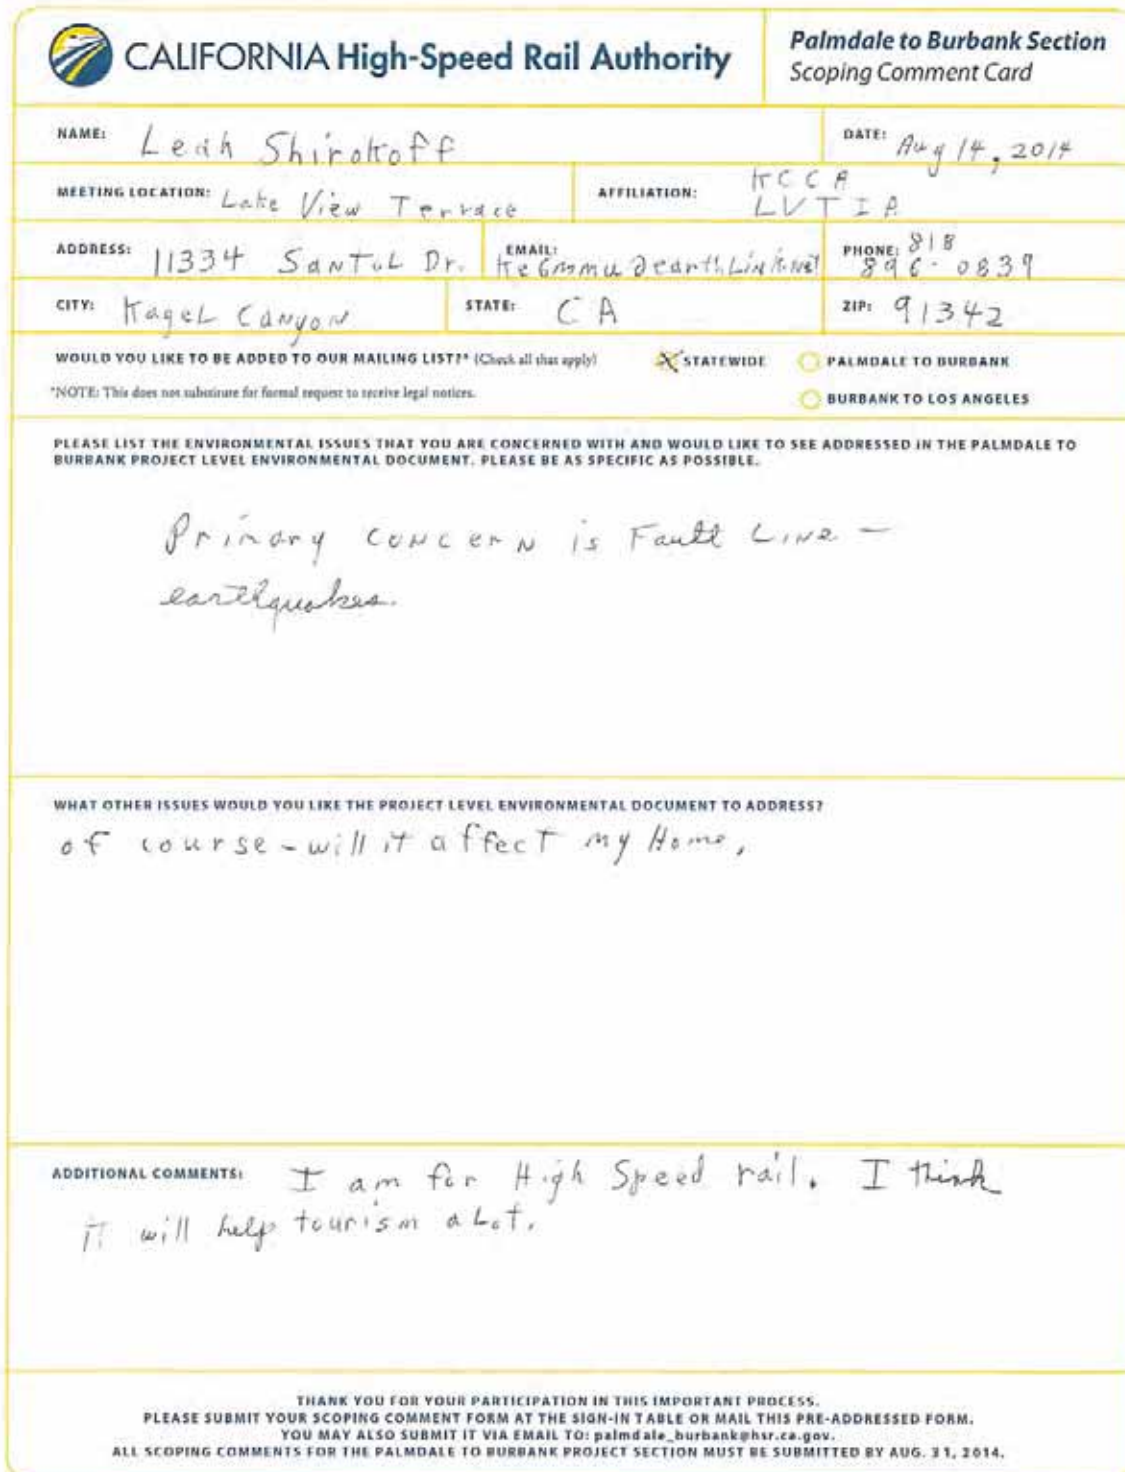 CALIFORNIA High-Speed Rail Authority
Palmdale to Burbank Section
Scoping Comment Card
NAME: Leah Shirokoff
DATE: Aug 14, 2014
MEETING LOCATION: Lake View Terrace
AFFILIATION: KCCA
LVTIA
ADDRESS: 11334 Santul Dr.
EMAIL:
PHONE: 818
896-0839
CITY: Kagel Canyon
STATE: CA
ZIP: 91342
WOULD YOU LIKE TO BE ADDED TO OUR MAILING LIST?* (Check all that apply)
STATEWIDE
PALMDALE TO BURBANK
*NOTE: This does not substitute for formal request to receive legal notices.
BURBANK TO LOS ANGELES
PLEASE LIST THE ENVIRONMENTAL ISSUES THAT YOU ARE CONCERNED WITH AND WOULD LIKE TO SEE ADDRESSED IN THE PALMDALE TO
BURBANK PROJECT LEVEL ENVIRONMENTAL DOCUMENT. PLEASE BE AS SPECIFIC AS POSSIBLE.
Primary concern is Fault Line -
earthquakes.
WHAT OTHER ISSUES WOULD YOU LIKE THE PROJECT LEVEL ENVIRONMENTAL DOCUMENT TO ADDRESS?
of course - will it affect my Home.
ADDITIONAL COMMENTS: I am for High Speed rail. I think
it will help tourism a Lot.
THANK YOU FOR YOUR PARTICIPATION IN THIS IMPORTANT PROCESS.
PLEASE SUBMIT YOUR SCOPING COMMENT FORM AT THE SIGN-IN TABLE OR MAIL THIS PRE-ADDRESSED FORM.
YOU MAY ALSO SUBMIT IT VIA EMAIL TO: palmdale_burbank@hsr.ca.gov.
ALL SCOPING COMMENTS FOR THE PALMDALE TO BURBANK PROJECT SECTION MUST BE SUBMITTED BY AUG. 31, 2014.